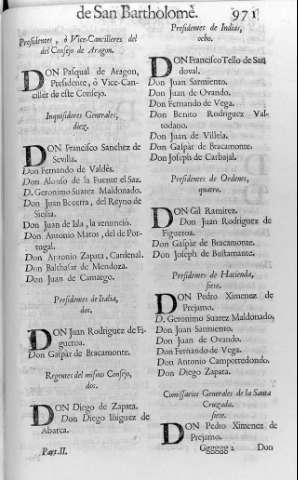 de San Bartholomè. 971
Presidentes, ò Vice-Cancilleres del
del Consejo de Aragon.
DON Pasqual de Aragon,
Presidente, ò Vice-Can-
ciller de este Consejo.
Inquisidores Generales,
diez.
DON Francisco Sanchez de
Sevilla.
Don Fernando de Valdès.
Don Alonso de la Fuente el Saz.
D. Geronimo Suarez Maldonado.
Don Juan Becerra, del Reyno de
Sicilia.
Don Juan de Isla, la renunciò.
Don Antonio Matos, del de Por-
tugal.
Don Antonio Zapata, Cardenal.
Don Balthasar de Mendoza.
Don Juan de Camargo.
Presidentes de Italia,
dos.
DON Juan Rodriguez de Fi-
gueroa.
Don Gaspar de Bracamonte.
Regentes del mismo Consejo,
dos.
DON Diego de Zapata.
Don Diego Iñiguez de
Abarca.
Part.II.
Presidentes de Indias,
ocho.
DON Francisco Tello de San-
doval.
Don Juan Sarmiento.
Don Juan de Ovando.
Don Fernando de Vega.
Don Benito Rodriguez Val-
todano.
Don Juan de Villela.
Don Gaspar de Bracamonte.
Don Joseph de Carbajal.
Presidentes de Ordenes,
quatro.
DON Gil Ramirez.
Don Juan Rodriguez de
Figueroa.
Don Gaspar de Bracamonte.
Don Joseph de Bustamante.
Presidentes de Hacienda,
siete.
DON Pedro Ximenez de
Prejamo.
D. Geronimo Suarez Maldonado,
Don Juan Sarmiento.
Don Juan de Ovando.
Don Fernando de Vega.
Don Antonio Camporredondo.
Don Diego Zapata.
Comissarios Generales de la Santa
Cruzada,
siete.
DON Pedro Ximenez de
Prejamo.
Gggggg 2 Don